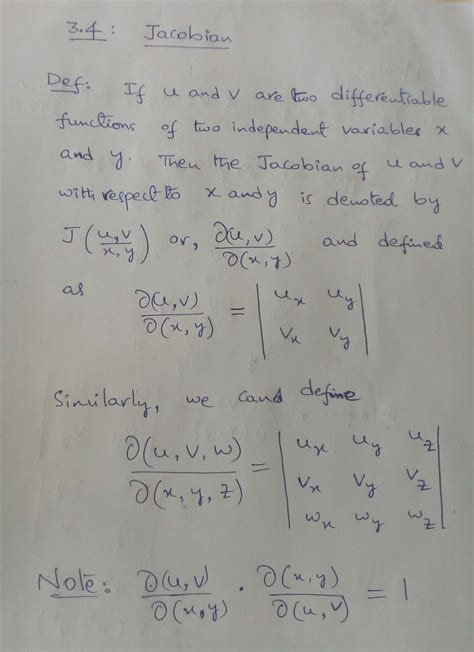 3.4 : Jacobian
Def: If u and v are two differentiable
functions of two independent variables x
and y. Then the Jacobian of u and v
with respect to x and y is denoted by
J(u,v / x,y) or, ∂(u,v)/∂(x,y) and defined
as ∂(u,v)/∂(x,y) = | u_x u_y ; v_x v_y |
Similarly, we cand define
∂(u,v,w)/∂(x,y,z) = | u_x u_y u_z ; v_x v_y v_z ; w_x w_y w_z |
Note: ∂(u,v)/∂(x,y) · ∂(x,y)/∂(u,v) = 1